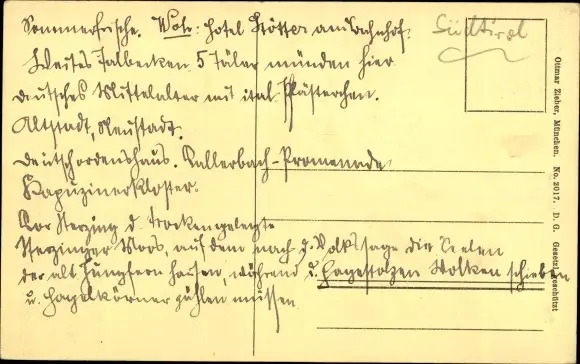 Sommerfrische. Notr: Hotel Stötter am Bahnhof.
Südtirol
Weites Talbecken 5 Täler münden hier
deutsches Mittelalter mit ital Plästerchen.
Altstadt, Neustadt.
Deutschordenshaus. Vallerbach-Promenade
Kapuzinerkloster.
Vor Sterzing d. trockengelegte
Sterzinger Moos, auf dem nach d. Volkssage die Seelen
der alt. Jungfern hausen, während d. Hagestolzen Wolken schieben
u. Hagelkörner zählen müssen
Ottmar Zieher, München. No. 2017. D. G. Gesetzl. geschützt